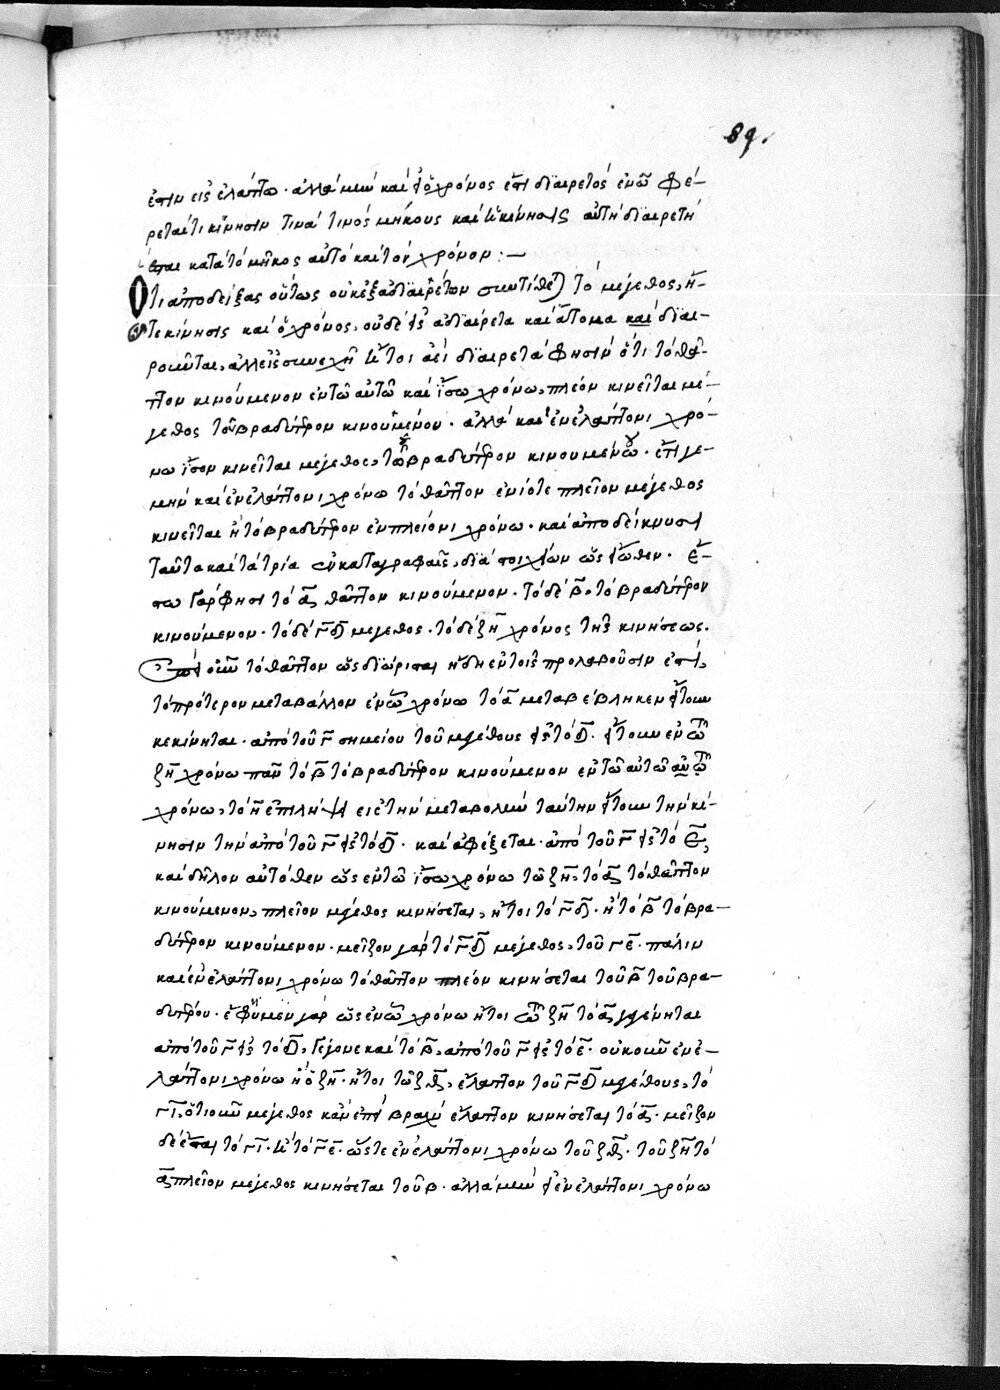 89.
ἐστιν εἰς ἐλάττω. ἀλλὰ μὴν καὶ ὁ χρόνος ἐστὶ διαιρετός ἐν ᾧ φέ-
ρεται τι κίνησιν τινὰ τινὸς μήκους καὶ ἡ κίνησις αὐτὴ διαιρετὴ
ἔσται κατὰ τὸ μῆκος αὐτὸ καὶ τὸν χρόνον :—
Ὅτι ἀποδείξας οὕτως οὐκ ἐξ ἀδιαιρέτων συντίθεται τὸ μέγεθος, ἥ-
τε κίνησις καὶ ὁ χρόνος, οὐδὲ εἰς ἀδιαίρετα καὶ ἄτομα καὶ διαι-
ροῦνται, ἀλλ' εἰς συνεχῆ ἤτοι ἀεὶ διαιρετὰ φησὶν ὅτι τὸ θᾶτ-
τον κινούμενον ἐν τῷ αὐτῷ καὶ ἴσω χρόνω, πλέον κινεῖται μέ-
γεθος τοῦ βραδύτερον κινουμένου. ἀλλὰ καὶ ἐν ἐλάττονι χρό-
νω ἴσον κινεῖται μέγεθος, τῷ βραδύτερον κινουμένῳ. ἔτι γε-
μὴν καὶ ἐν ἐλάττονι χρόνω τὸ θᾶττον ἐνίοτε πλεῖον μέγεθος
κινεῖται ἢ τὸ βραδύτερον ἐν πλείονι χρόνω. καὶ ἀποδείκνυσι
ταῦτα καὶ τὰ τρία ἐν καταγραφαῖς, διὰ στοιχείων ὡς εἴωθεν. ἔ-
στω γάρ φησι τὸ α θᾶττον κινούμενον. τὸ δὲ β τὸ βραδύτερον
κινούμενον. τὸ δὲ γδ μέγεθος. τὸ δὲ ζη χρόνος τῆς κινήσεως.
οὖν τὸ θᾶττον ὡς διώρισται ἤδη ἐν τοῖς προλαβοῦσιν ἐστί,
τὸ πρότερον μεταβάλλον ἐν ᾧ χρόνω τὸ α μεταβέβληκεν ἤτοι
κεκίνηται. ἀπὸ τοῦ γ σημείου τοῦ μεγέθους εἰς τὸ δ. ἤτοι ἐν τῷ
ζη χρόνω παν τὸ β τὸ βραδύτερον κινούμενον ἐν τῷ αὐτῷ
χρόνω, τὸ εἰς τὴν μεταβολὴν ταύτην ἤτοι τὴν κί-
νησιν τὴν ἀπὸ τοῦ γ εἰς τὸ δ. καὶ ἀφέξεται. ἀπὸ τοῦ γ εἰς τὸ ε,
καὶ δῆλον αὐτόθεν ὡς ἐν τῷ ἴσω χρόνω τῷ ζη, τὸ α τὸ θᾶττον
κινούμενον, πλεῖον μέγεθος κινήσεται, ἤτοι τὸ γδ. ἢ τὸ β τὸ βρα-
δύτερον κινούμενον. μεῖζον γὰρ τὸ γδ μέγεθος, τοῦ γε. πάλιν
καὶ ἐν ἐλάττονι χρόνω τὸ θᾶττον πλέον κινήσεται τοῦ β τοῦ βρα-
δυτέρου. ἔφημεν γὰρ ὡς ἐν ᾧ χρόνω ἤτοι τῷ ζη τὸ α γεγένηται
ἀπὸ τοῦ γ εἰς τὸ δ, γέγονε καὶ τὸ β, ἀπὸ τοῦ γ εἰς τὸ ε. οὐκοῦν ἐν ἐ-
λάττονι χρόνω ἢ ὁ ζη. ἤτοι τῷ ζθ, ἔλαττον τοῦ γδ μεγέθους, τὸ
γι, ὅτι οὖν μέγεθος κἂν ἐπὶ βραχὺ ἔλαττον κινήσεται τὸ α. μεῖζον
δὲ ἔσται τὸ γι. ἢ τὸ γε. ὥστε ἐν ἐλάττονι χρόνω τοῦ ζθ. τοῦ ζη τὸ
α πλεῖον μέγεθος κινήσεται τοῦ β. ἀλλὰ μὴν εἰ ἐν ἐλάττονι χρόνω